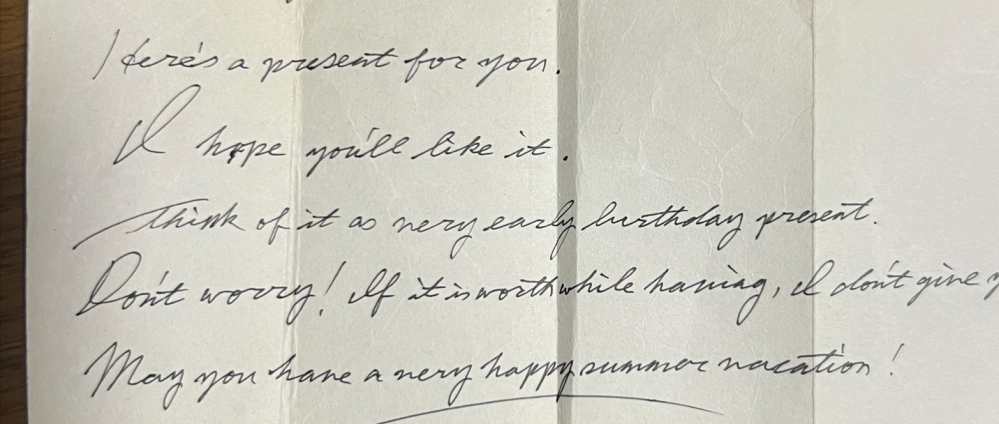 Here's a present for you.
I hope you'll like it.
Think of it as very early birthday present.
Don't worry! If it is worthwhile having, I don't give
May you have a very happy summer vacation!